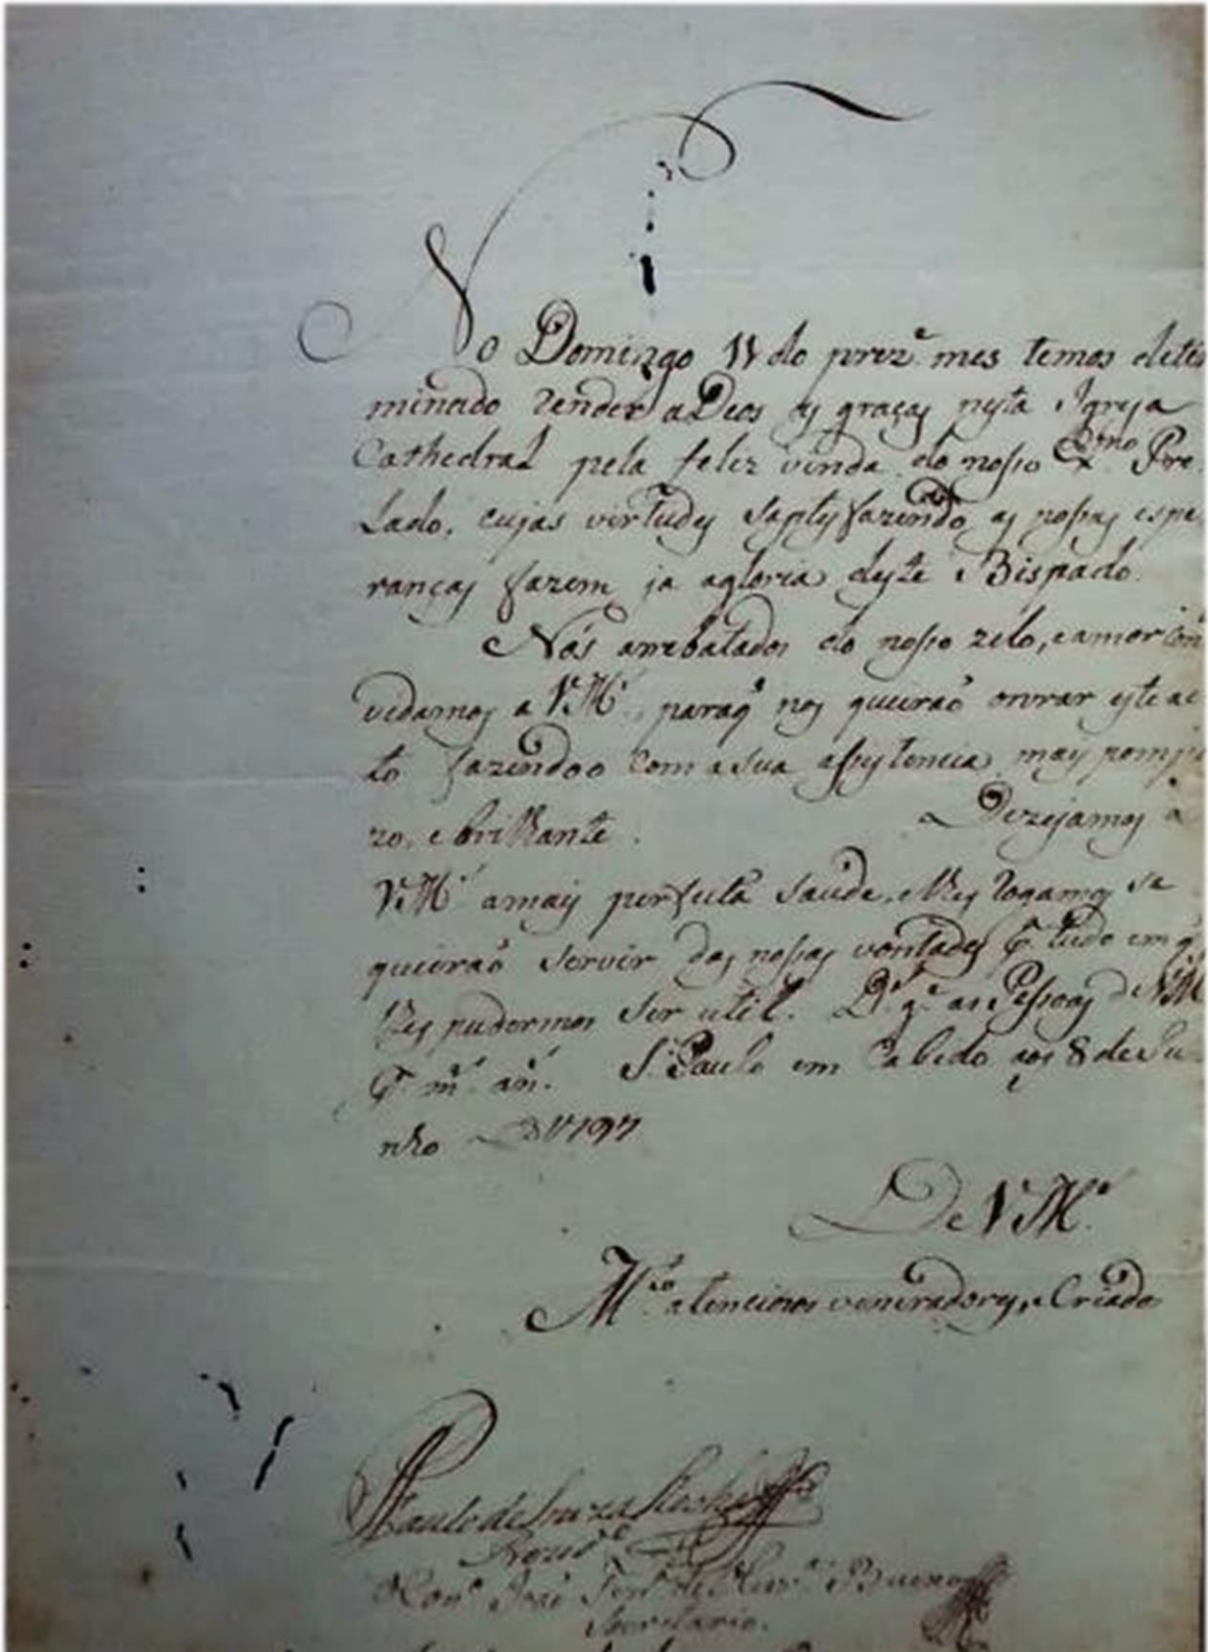 No Domingo 11 do prez.e mes temos deter
minado render a Deos as graças nesta Igreja
Cathedral pela feliz vinda do nosso Ex.mo Pre
lado, cujas virtudes satysfazendo as nossas espe
ranças fazem ja agloria deste Bispado.
Nós arrebatados do nosso zelo, e amor con
vidamos a VM.es paraq̃ nos queiraõ onrar este ac
to fazendoo com asua assystencia mays pompo
zo, e brilhante. Dezejamos a
VM.es amays perfeita saude, e lhes rogamos se
queiraõ servir das nossas vontades p.a tudo em q̃
lhes pudermos ser util. D.s g.e as Pessoas de VM
p.r m.s an.s S. Paulo em Cabido aos 8 de Ju
nho de 1797
De VM.es
M.to atenciozos veneradores, e Criados
Paulo de Souza Rocha
Con.o José
Secretario.